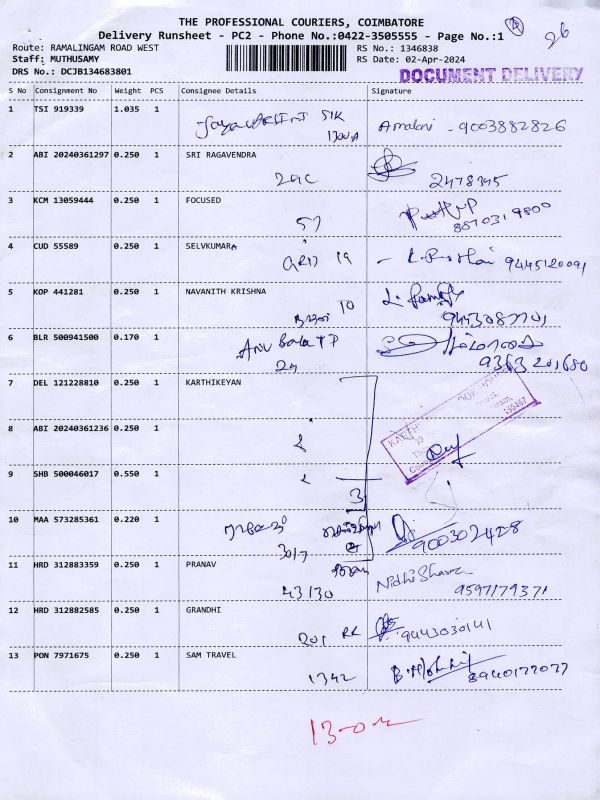 THE PROFESSIONAL COURIERS, COIMBATORE
Delivery Runsheet - PC2 - Phone No.:0422-3505555 - Page No.:1
26
Route: RAMALINGAM ROAD WEST
RS No.: 1346838
Staff: MUTHUSAMY
RS Date: 02-Apr-2024
DRS No.: DCJB134683801
DOCUMENT DELIVERY
S No Consignment No Weight PCS Consignee Details Signature
1 TSI 919339 1.035 1 Amalani - 9003882826
2 ABI 20240361297 0.250 1 SRI RAGAVENDRA
3 KCM 13059444 0.250 1 FOCUSED
57
4 CUD 55589 0.250 1 SELVKUMARA
19 9445120091
5 KOP 441281 0.250 1 NAVANITH KRISHNA
10
6 BLR 500941500 0.170 1 Anu Bala TP
24 9363201680
7 DEL 121228810 0.250 1 KARTHIKEYAN
8 ABI 20240361236 0.250 1
9 SHB 500046017 0.550 1
3
10 MAA 573285361 0.220 1
3017 9003024428
11 HRD 312883359 0.250 1 PRANAV
43130 Nidhi Sharma 9597179371
12 HRD 312882585 0.250 1 GRANDHI
201 RK 9443030141
13 PON 7971675 0.250 1 SAM TRAVEL
1342 8940177077